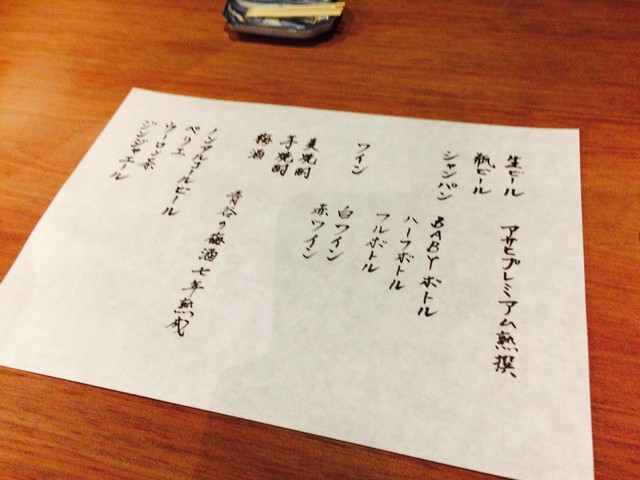 生ビール アサヒプレミアム熟撰
瓶ビール
シャンパン BABYボトル
ハーフボトル
フルボトル
ワイン 白ワイン
赤ワイン
麦焼酎
芋焼酎
梅酒 青谷の梅酒七年熟成
ノンアルコールビール
ペリエ
ウーロン茶
ジンジャエール